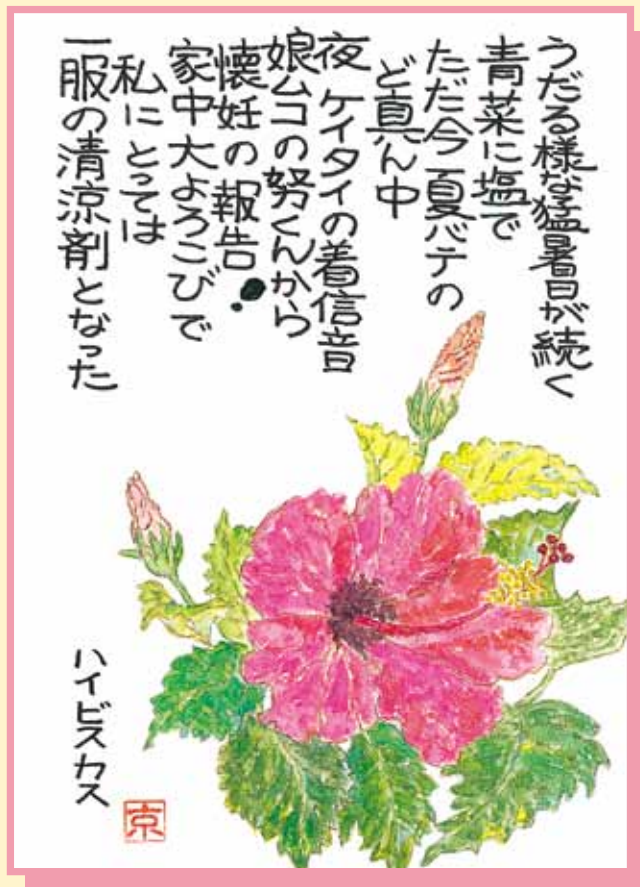 うだる様な猛暑日が続く
青菜に塩で
ただ今夏バテの
ど真ん中
夜 ケイタイの着信音
娘ムコの努くんから
懐妊の報告!
家中大よろこびで
私にとっては
一服の清涼剤となった
ハイビスカス
京